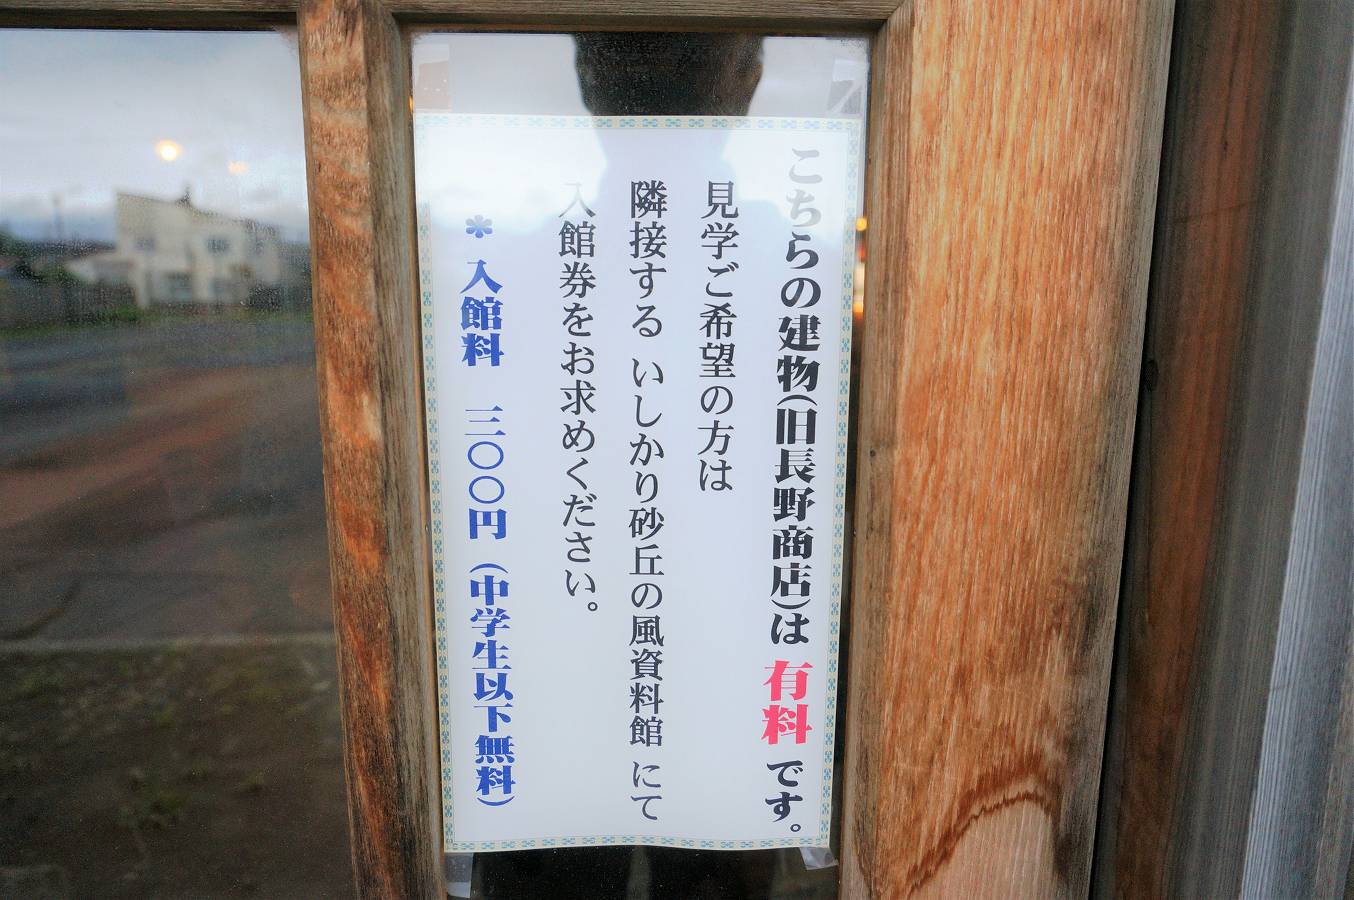 こちらの建物(旧長野商店)は 有料 です。
見学ご希望の方は
隣接する いしかり砂丘の風資料館 にて
入館券をお求めください。
＊ 入館料 三〇〇円 (中学生以下無料)